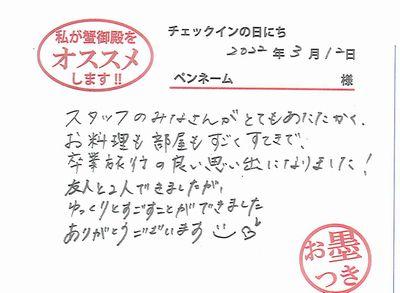 私が蟹御殿を
オススメ
します!!
チェックインの日にち
2022年3月12日
ペンネーム 様
スタッフのみなさんがとてもあたたかく、
お料理も部屋もすごくすてきで、
卒業旅行の良い思い出になりました!
友人と2人できましたが、
ゆっくりとすごすことができました
ありがとうございます
お墨
つき